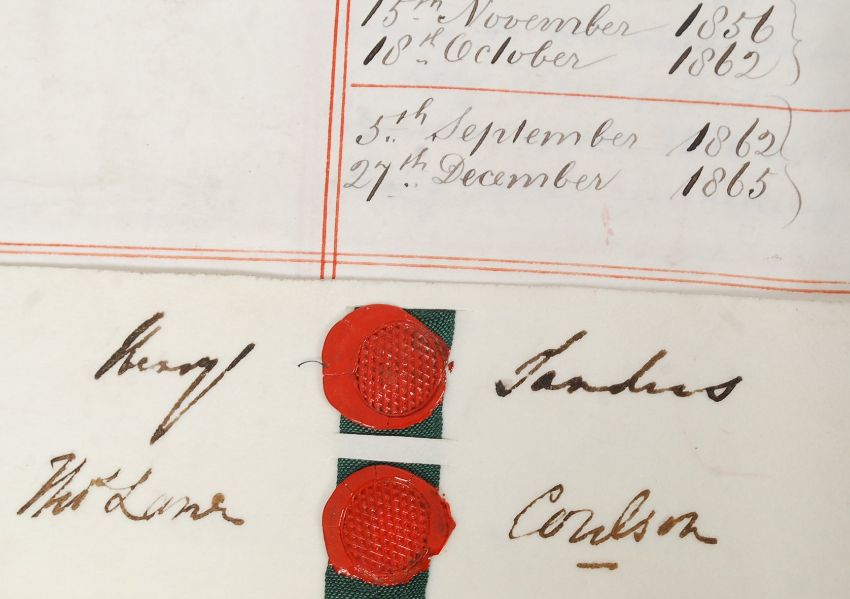 15th November 1856
18th October 1862
5th September 1862
27th December 1865
Henry Sanders
Thos Lane Coulson